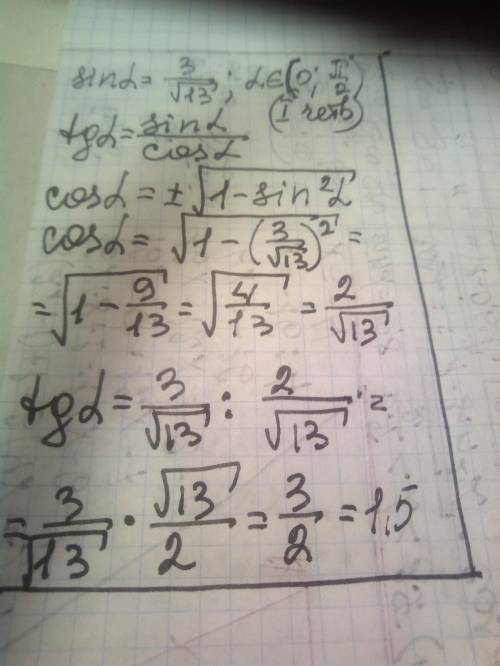 sinα = 3/√13; α∈(0; π/2)
(I четв)
tgα = sinα/cosα
cosα = ±√(1-sin²α)
cosα = √(1-(3/√13)²) =
= √(1-9/13) = √(4/13) = 2/√13
tgα = 3/√13 : 2/√13 =
= 3/√13 · √13/2 = 3/2 = 1,5